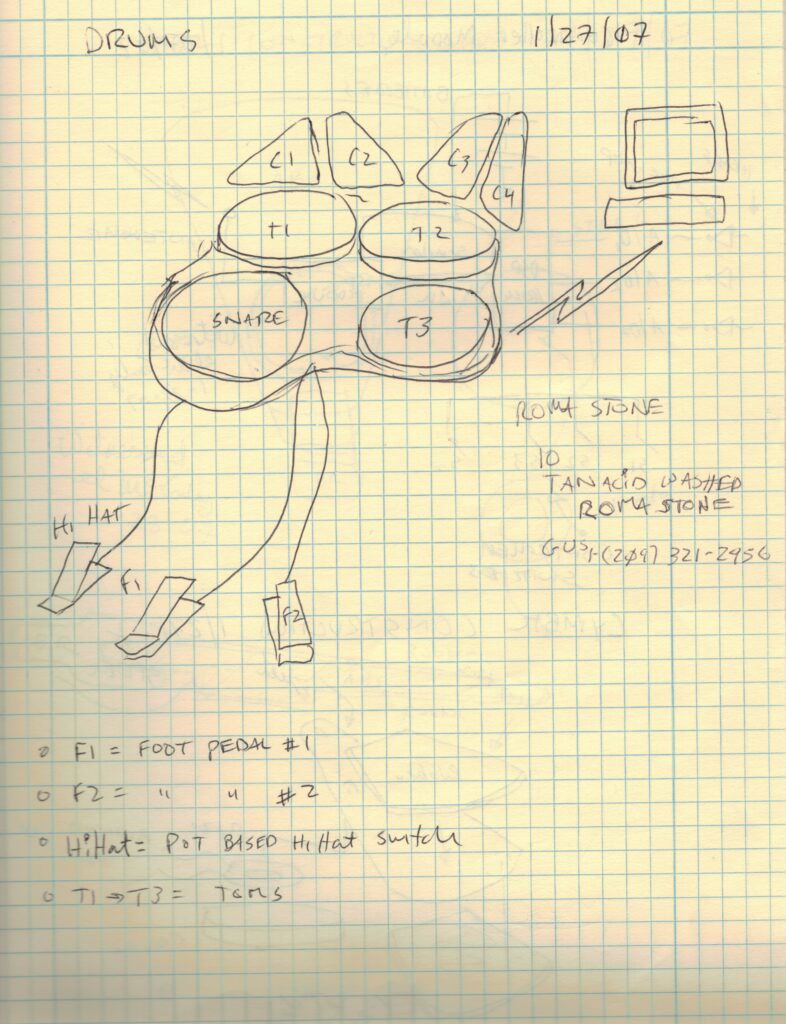 DRUMS
1/27/07
C1
C2
C3
C4
T1
T2
SNARE
T3
ROMA STONE
10
TAN ACID WASHED
ROMA STONE
GUS 1-(209) 321-2956
Hi HAT
F1
F2
F1 = FOOT PEDAL #1
F2 = " " #2
HiHat = POT BASED HiHat switch
T1 → T3 = TOMS